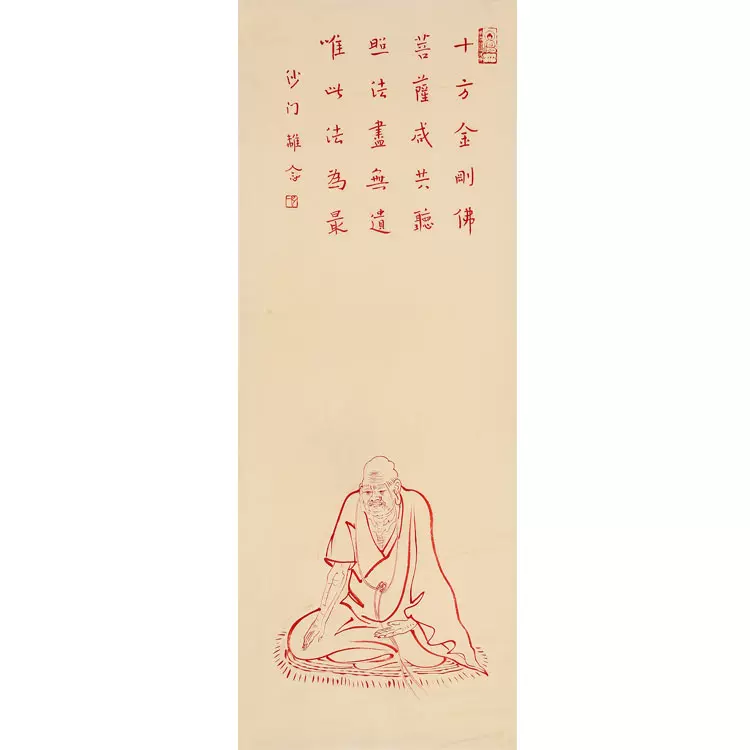 十方金剛佛
菩薩咸共聽
照法盡無遺
唯此法為最
沙门離念